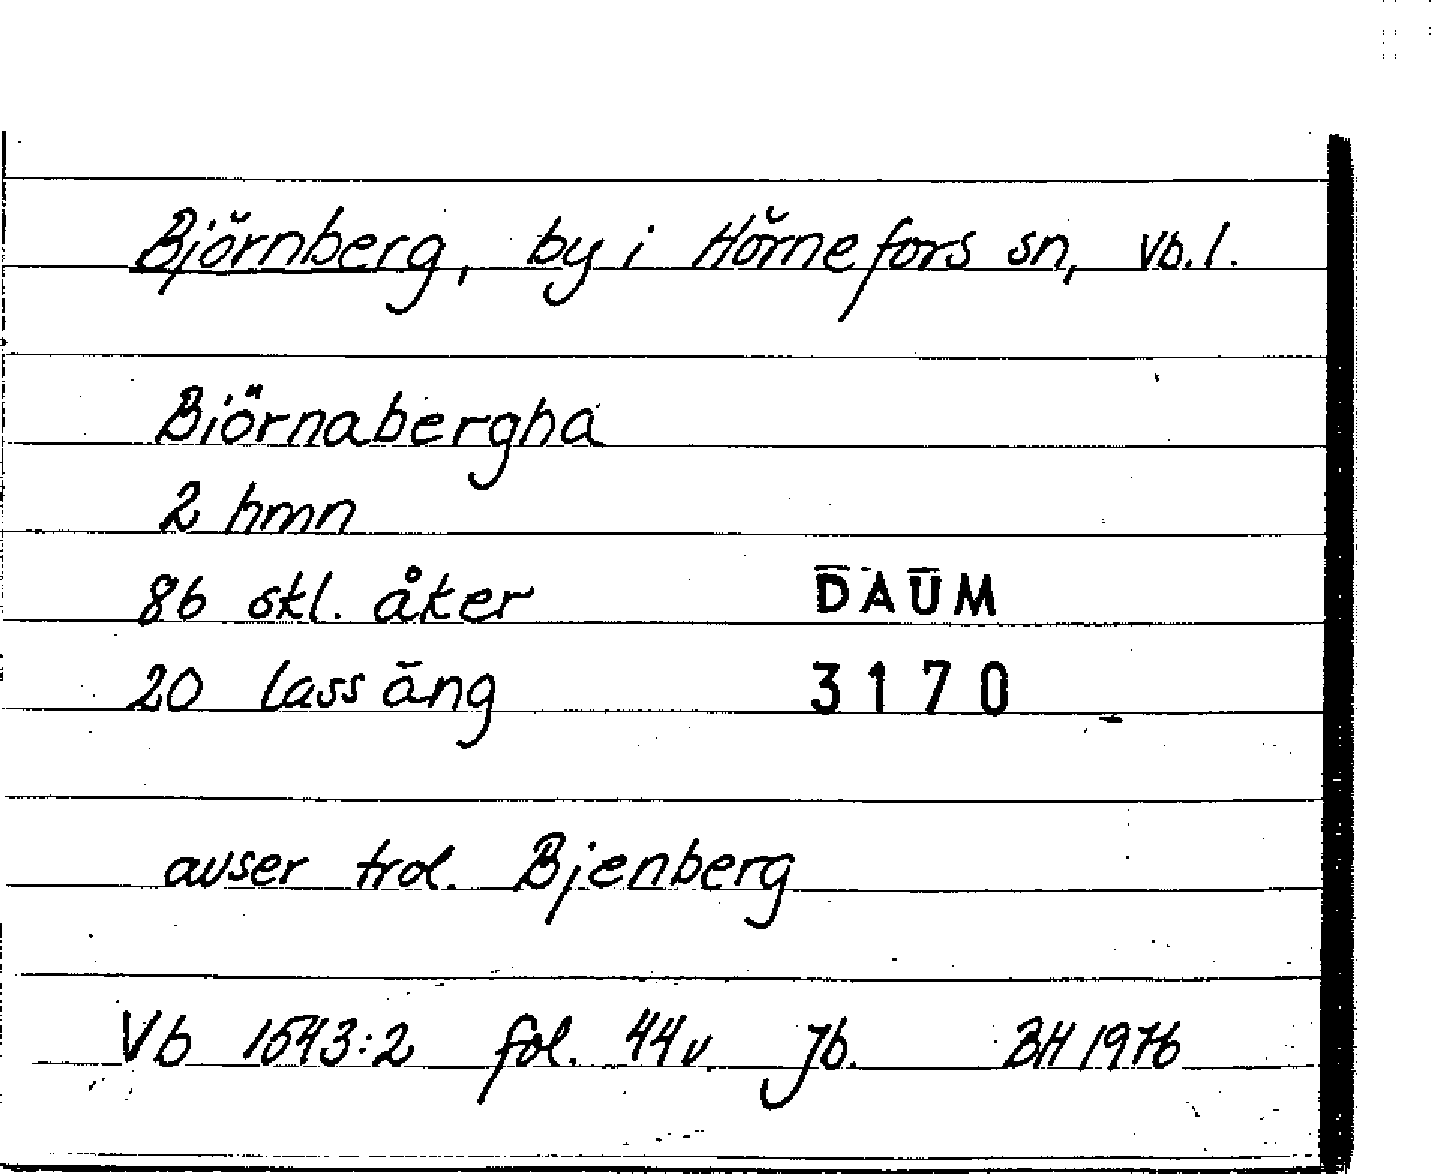 Björnberg, by i Hörnefors sn, Vb.l.
Biörnabergha
2 hmn
86 skl. åker
DAUM
20 lass äng
3170
avser trol. Bjenberg
Vb 1543:2 fol. 44v Jb. BH 1976